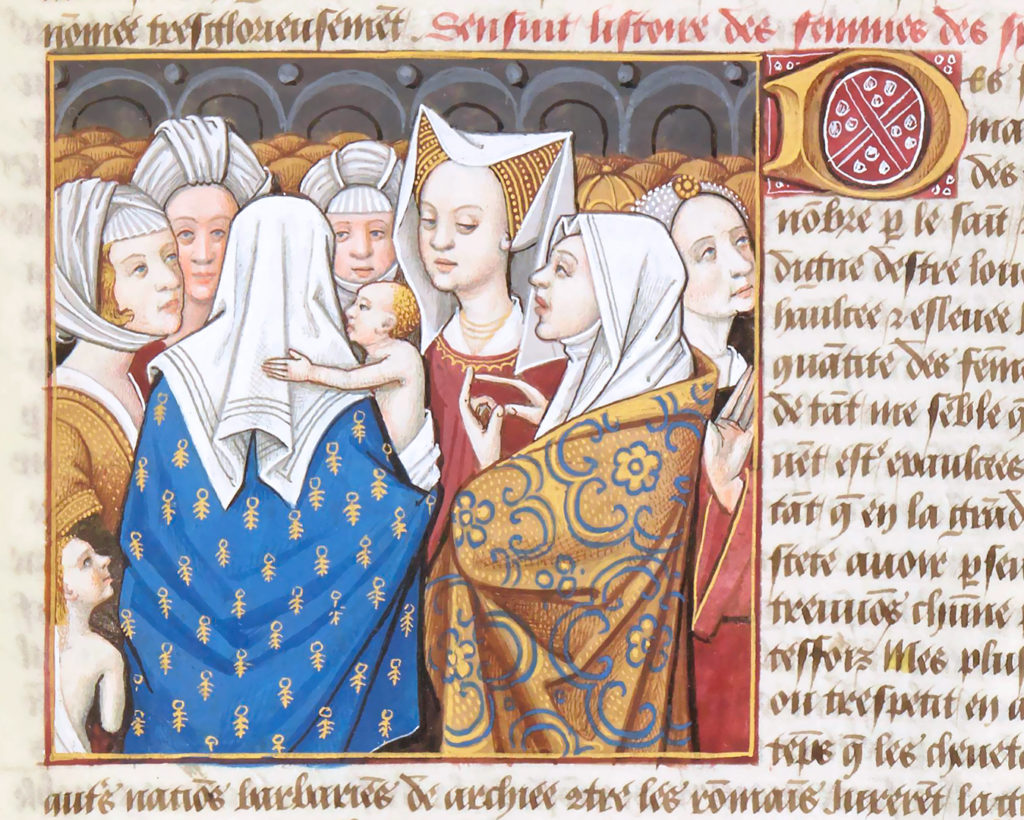 nõmee tresglorieusemẽt . Sensuit listoire des femmes des
es
ma
des
nõbre p le sait
digne destre lou
haultee & esleuee
quãtite des fem
de tãt me sẽble q
uẽt est exaulcees
tãt q̃ en la grãd
stete auoir
treuuõs chũne
tesfoiz Mes plus
ou trespetit en
tẽps q̃ les cheuet
autẽs natiõs barbaries de archiee &tre les rõmais Jurerẽt la